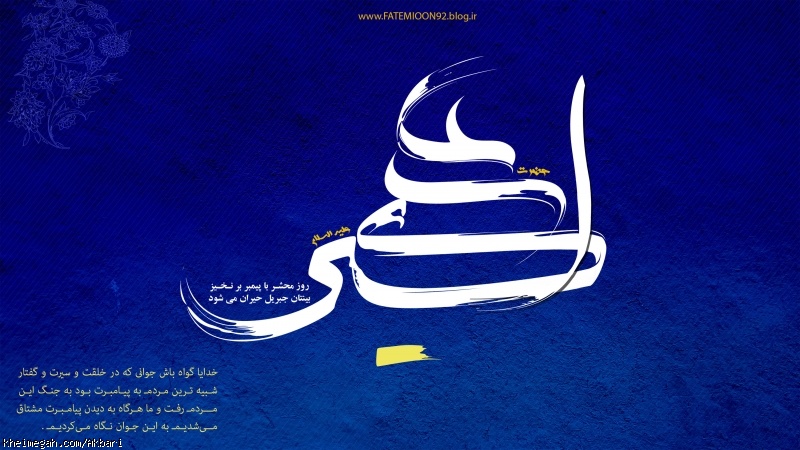 www.FATEMIOON92.blog.ir
حضرت
علی اکبر
علیه السلام
روز محشر با پیمبر بر نخیز
بینتان جبریل حیران می شود
خدایا گواه باش جوانی که در خلقت و سیرت و گفتار
شبیه ترین مردم به پیامبرت بود به جنگ این
مردم رفت و ما هرگاه به دیدن پیامبرت مشتاق
می‌شدیم به این جوان نگاه می‌کردیم.
kheimegah.com/Akbari